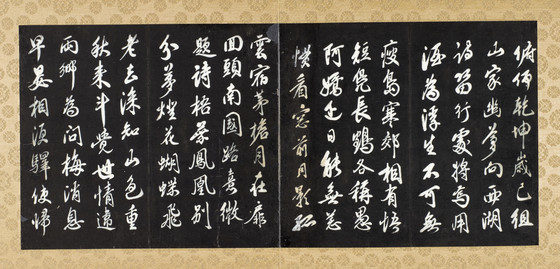 俯仰乾坤歲已徂
山家幽夢向西湖
詩留行處將焉用
酒為浮生不可無
瘦島寒郊相有悟
短鳧長鶴各稱愚
阿嬌近日能無恙
看窗前月影孤
雲宿茅檐月在扉
回頭南國路熹微
題詩格鳳凰別
夢燈花蝴蝶飛
老去深知山色重
秋來斗覺世情違
兩鄉為問梅消息
早晏相驛使歸